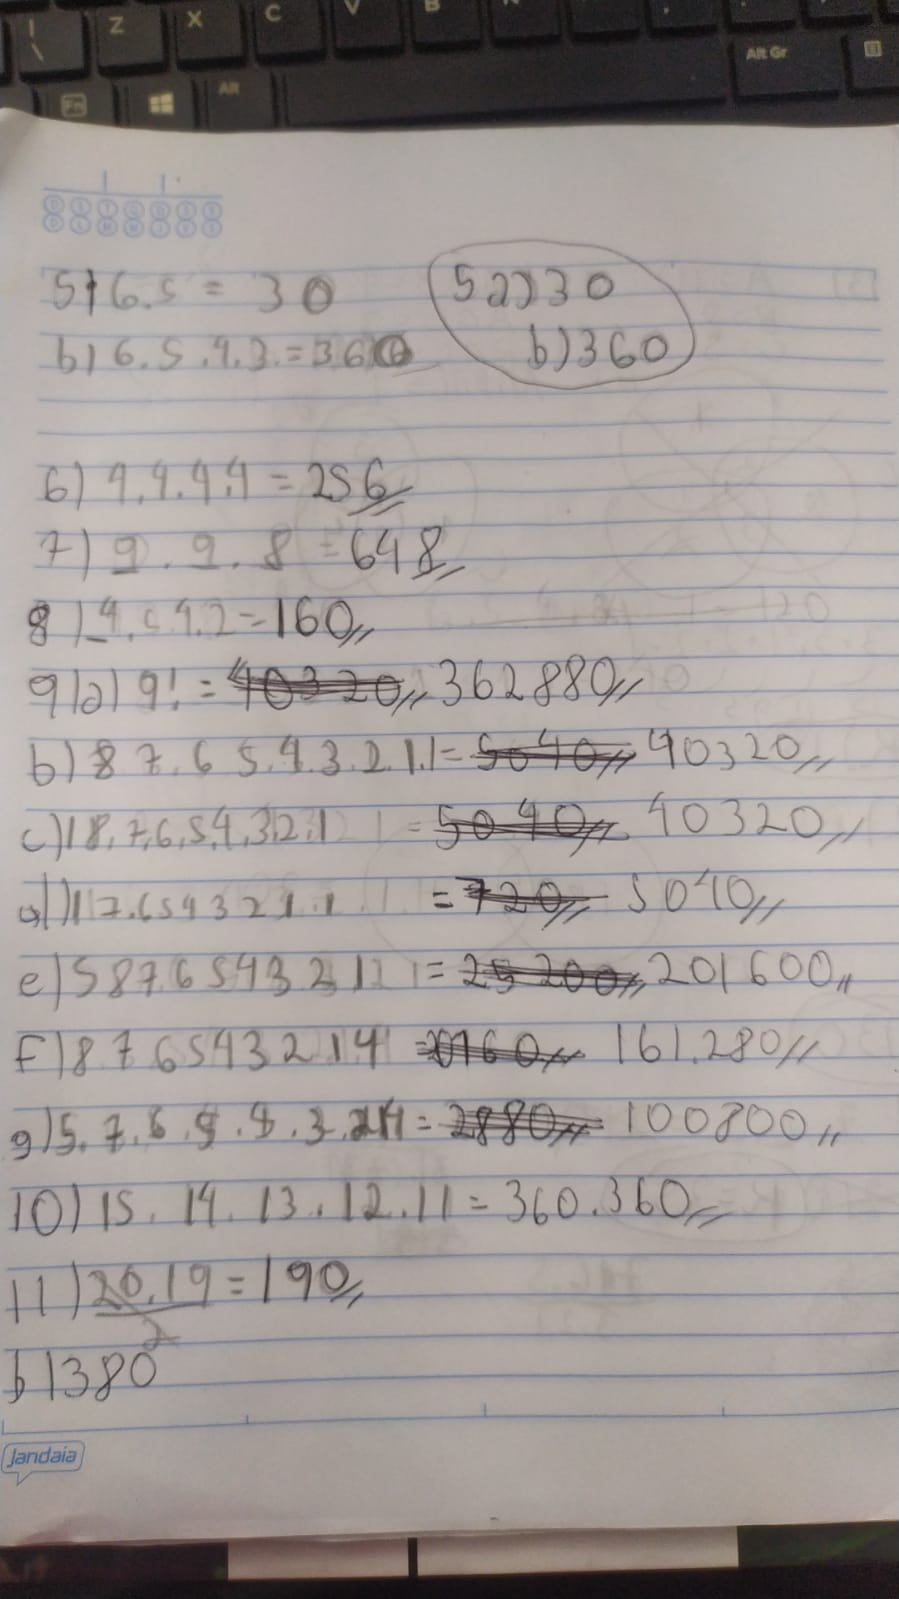 Z X C V B
Alt Gr
Fn Alt
5) 6.5 = 30
5 a) 30
b) 6.5.4.3.=360
b) 360
6) 4.4.4.4 = 256
7) 9.9.8 = 648
8) 4.5.4.2=160
9) a) 9! = 40320 362880
b) 8 7.6 5.4.3.2.1.1= 5040 40320
c) 1 8.7.6.5.4.3.2.1 = 5040 40320
d) 1 7.6 5 4 3 2 1.1 = 720 5040
e) 5 8 7.6 5 4 3 2 1 = 25200 201600
F) 8 7 6 5 4 3 2 1 4 = 20160 161.280
g) 5.7.6.5.4.3.2.1 4 = 2880 100800
10) 15.14.13.12.11 = 360.360
11) 20.19 = 190
2
b) 380
Jandaia